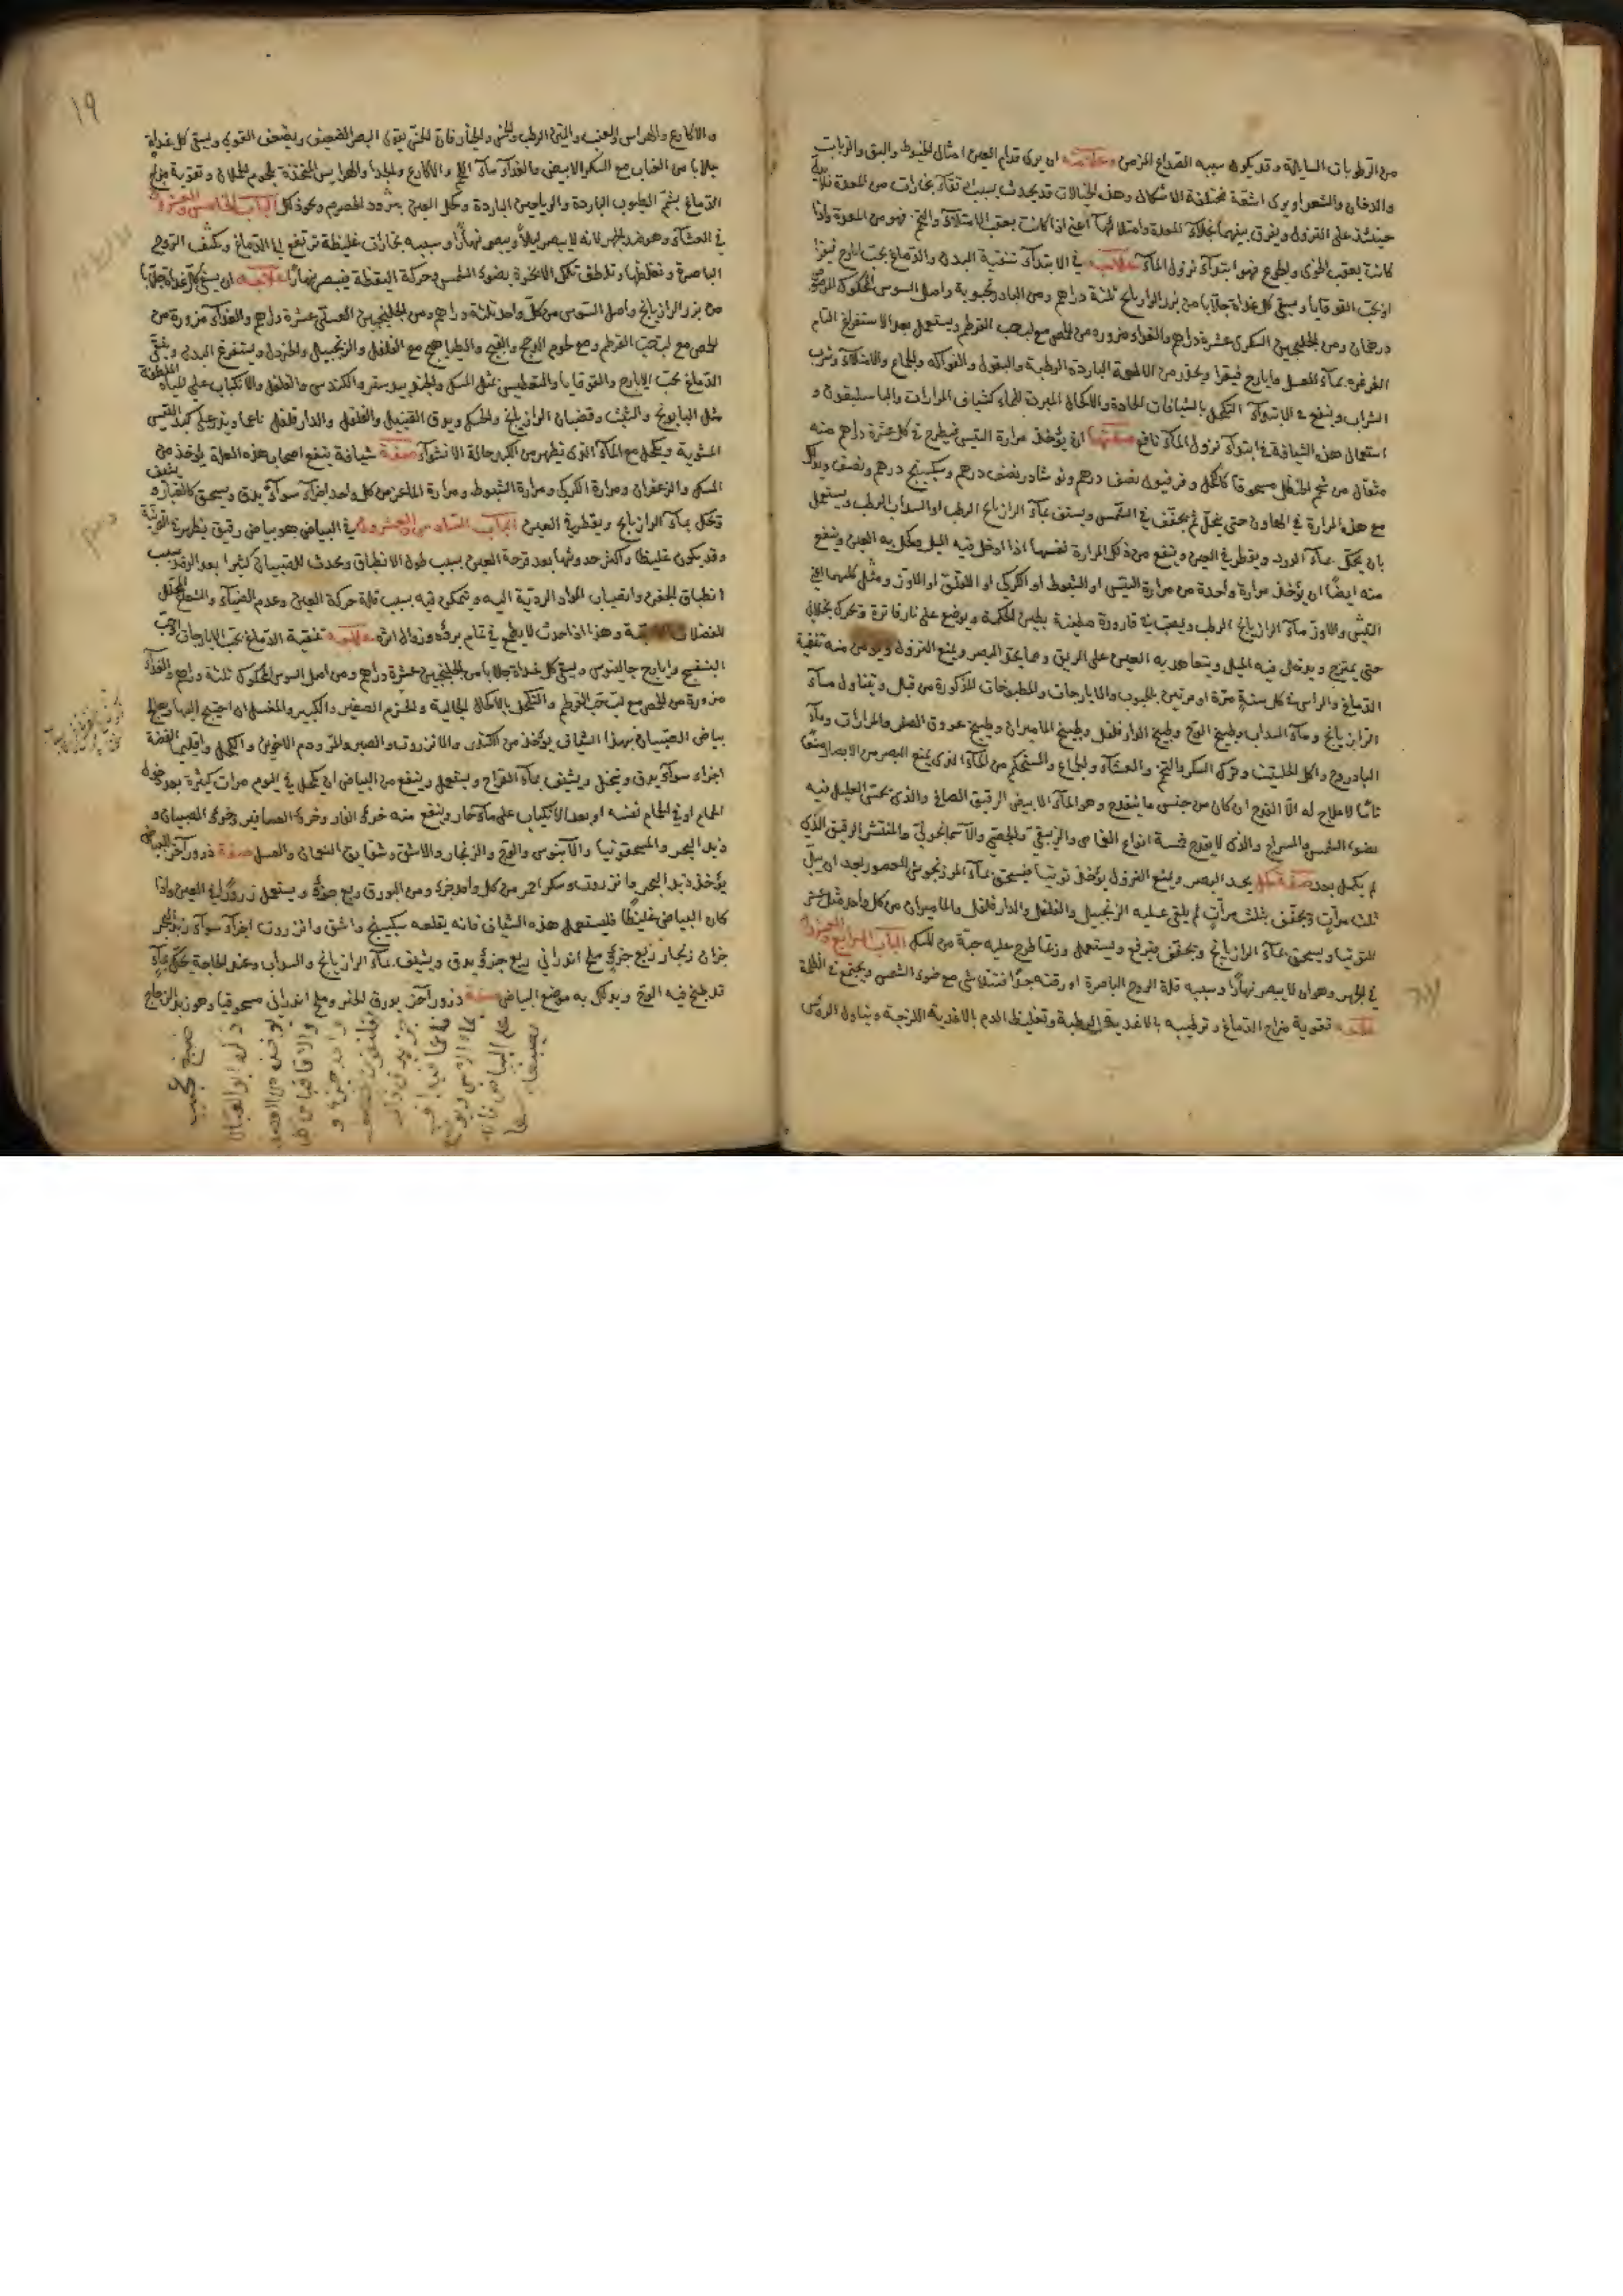 من الرطوبات السايلة وقد يكون سببه الصداع المزمن وعلامته ان يرى قدام العين امثال الخيوط والبق والذباب
والدخان والشعر او يرى اشعة مختلفة الاشكال وهذه الخيالات قد يحدث بسبب تقاء بخارات من المعدة
حينئذ على النزول ويفرق بينهما بخلاء المعدة وامتلائها اعني اذا كانت بعقب الامتلاء والتخم فهو من المعدة واذا
كانت بعقب الخوى والجوع فهو ابتداء نزول الماء علاجه في الابتداء تنقية البدن والدماغ بحب ايارج فيقرا
او بحب القوقايا ويسقى كل غداة جلابا من بزر الرازيانج ثلثة دراهم ومن البادرنجبوية واصل السوس المحكوك المرضوض
درهمان ومن الجلنجبين السكري عشرة دراهم والغذاء مزورة من الحمص مع لب حب القرطم ويستعمل بعد الاستفراغ التام
الغرغرة بماء العسل وايارج فيقرا ويحذر من الاطعمة الباردة الرطبة والبقول والفواكه والجماع والامتلاء وشرب
الشراب وينفع في الابتداء التكحل بالشيافات الحادة والاكحال المبردة للماء كشياف المرارات والباسليقون و
استعمال هذه الشيافة في ابتداء نزول الماء نافع صفتها ان يؤخذ مرارة التيس فيطرح في كل عشرة دراهم منه
مثقال من شحم الحنظل مسحوقا كالكحل وفرفيون نصف درهم ونوشادر نصف درهم وسكبينج درهم ونصف ويدلك
مع هذه المرارة في الهاون حتى ينحل ثم يجفف في الشمس ويسقى بماء الرازيانج الرطب او السداب الرطب ويستعمل
بان يحك بماء الورد ويقطر في العين وينفع من ذلك المرارة نفسها اذا ادخل فيه الميل ويكحل به العين وينفع
منه ايضا ان يؤخذ مرارة واحدة من مرارة التيس او الشبوط او الكركي او اللقلق او الماوز ومثل كلهما اعني
التيس والاوز ماء الرازيانج الرطب ويصب في قارورة مطينة بطين الحكمة ويوضع على نار فاترة ويحرك بخلال
حتى يمتزج ويدخل فيه الميل ويتعاهد به العين على الريق ومما يحد البصر ويمنع النزول ويؤمن منه تنقية
الدماغ والراس في كل سنة مرة او مرتين بالحبوب والايارجات والمطبوخات المذكورة من قبل وتناول ماء
الرازيانج وماء السداب وطبيخ الوج وطبيخ الدارفلفل وطبيخ الماميران وطبيخ عروق الصفر والمرارات وماء
البادروج واكل الحلتيت وترك السكر والتخم والعشاء والجماع والمستحكم من الماء الذي يمنع البصر من الابصار منعا
تاما لا علاج له الا القدح ان كان من جنس ما ينقدح وهو الماء الابيض الرقيق الصافي والذي يحس العليل فيه
بضوء الشمس والسراج والذي لا ينقدح خمسة انواع الغمامي والزيبقي والجصي والآسمانجوني والمنتشر الرقيق الذي
لم يكمل بعد صفة كحل يحد البصر ويمنع النزول يؤخذ توتيا فيسحق بماء المرزنجوش المعصور بعد ان يبل
ثلث مرات ويجفف ثلث مرات ثم يلقى عليه الزنجبيل والفلفل والدارفلفل والماميران من كل واحد مثل عشر
التوتيا ويسحق بماء الرازيانج ويجفف ويرفع ويستعمل وربما طرح عليه حبة من المسك الباب الرابع والعشرون
في الجهر وهو ان لا يبصر نهارا وسببه قلة الروح الباصرة او رقته جدا فتتلاشى مع ضوء الشمس ويجتمع في الظلمة
علاجه تقوية مزاج الدماغ وترطيبه بالاغذية الرطبة وتغليظ الدم بالاغذية اللزجة وتناول الروس
١٩
والاكارع والهراس والعنب والتين الرطب والخس والخيار فان الخس يقوى البصر الضعيف ويضعف القوي ويسقى كل غداة
جلابا من العناب مع السكر الابيض والغذاء ماء اللحم والاكارع والجداء والهرايس المتخذة بلحوم الحملان وتقوية مزاج
الدماغ بشم الطيوب الباردة والرياحين الباردة وكحل العين ببرود الحصرم ونحو ذلك الباب الخامس والعشرون
في العشاء وهو ضد الجهر لانه لا يبصر ليلا ويبصر نهارا وسببه بخارات غليظة ترتفع الى الدماغ ويكثف الروح
الباصرة وتغلظها وتلطف تلك الابخرة بضوء الشمس وحركة اليقظة فيبصر نهارا علاجه ان يسقى كل غداة جلابا
من بزر الرازيانج واصل السوس من كل واحد ثلثة دراهم ومن الجلنجبين العسلي عشرة دراهم والغذاء مزورة من
الحمص مع لب حب القرطم ومع لحوم الدجج والقبج والطياهيج مع الفلفل والزنجبيل والخردل ويستفرغ البدن وينقى
الدماغ بحب الايارج والقوقايا والتعطيس بمثل المسك والجندبيدستر والكندس والفلفل والانكباب على المياه الملطفة
مثل البابونج والشبث وقضبان الرازيانج والحسك ويدق القنبيل والفلفل والدارفلفل ناعما ويذر على كبد التيس
المشوية ويكحل مع الماء الذي يظهر من الكبد حالة الانشواء صفة شيافة ينفع اصحاب هذه العلة يؤخذ من
المسك والزعفران ومرارة الكركي ومرارة الشبوط ومرارة الماعز من كل واحد اجزاء سواء يدق ويسحق كالغبار ويشيف
ويحك بماء الرازيانج ويقطر في العين الباب السادس والعشرون في البياض هو بياض رقيق يظهر في القرنية
وقد يكون غليظا واكثر حدوثها بعد قرحة العين بسبب طول الانطباق ويحدث للصبيان كثيرا بعد الرمد بسبب
انطباق الجفن وانصباب المواد الردية اليه ويتمكن فيه بسبب قلة حركة العين وعدم الضياء والشعاع المحلل
للفضلات وهذا اذا حدث لا يطمع في تمام برئه وزوال اثره علاجه تنقية الدماغ بحب الايارجات وحب
البنفسج وايارج جالينوس ويسقى كل غداة جلابا من الجلنجبين عشرة دراهم ومن اصل السوس المحكوك ثلثة دراهم والغذاء
مزورة من الحمص مع لب حب القرطم والتكحل بالاكحال الجالية والحزم الصغير والكبير والمغسل ان احتيج اليها ويعالج
بياض الصبيان بهذا الشياف يؤخذ من الكندر والانزروت والصبر والمر ودم الاخوين والكحل واقليميا الفضة
اجزاء سواء يدق وينخل ويشيف بماء القراح ويستعمل وينفع من البياض ان يكحل في اليوم مرات كثيرة بعد دخول
الحمام او في الحمام نفسه او بعد الانكباب على ماء حار وينفع منه خرؤ الفار وخرؤ العصافير وخرؤ الصبيان و
زبد البحر والمسحقونيا والآبنوس والوج والزنجار والاشق وشقايق النعمان والعسل صفة ذرور آخر للبياض
يؤخذ زبد البحر وانزروت وسكر احمر من كل واحد جزء ومن البورق ربع جزء ويستعمل ذرورا في العين واذا
كان البياض غليظا فليستعمل هذه الشياف فانه يقلعه سكبينج واشق وانزروت اجزاء سواء زبد البحر
جزان زنجار ربع جزء ملح اندراني ربع جزء يدق ويشيف بماء الرازيانج والسداب وعند الحاجة يحك بماء
قد طبخ فيه الوج ويدلك به موضع البياض صفة ذرور آخر بورق الخبز وملح اندراني مسحوقا وهو زبد الزجاج
صبغ عجيب
ذكره ابو العباس
يؤخذ من العفص
والاقاقيا من كل
واحد جزء و